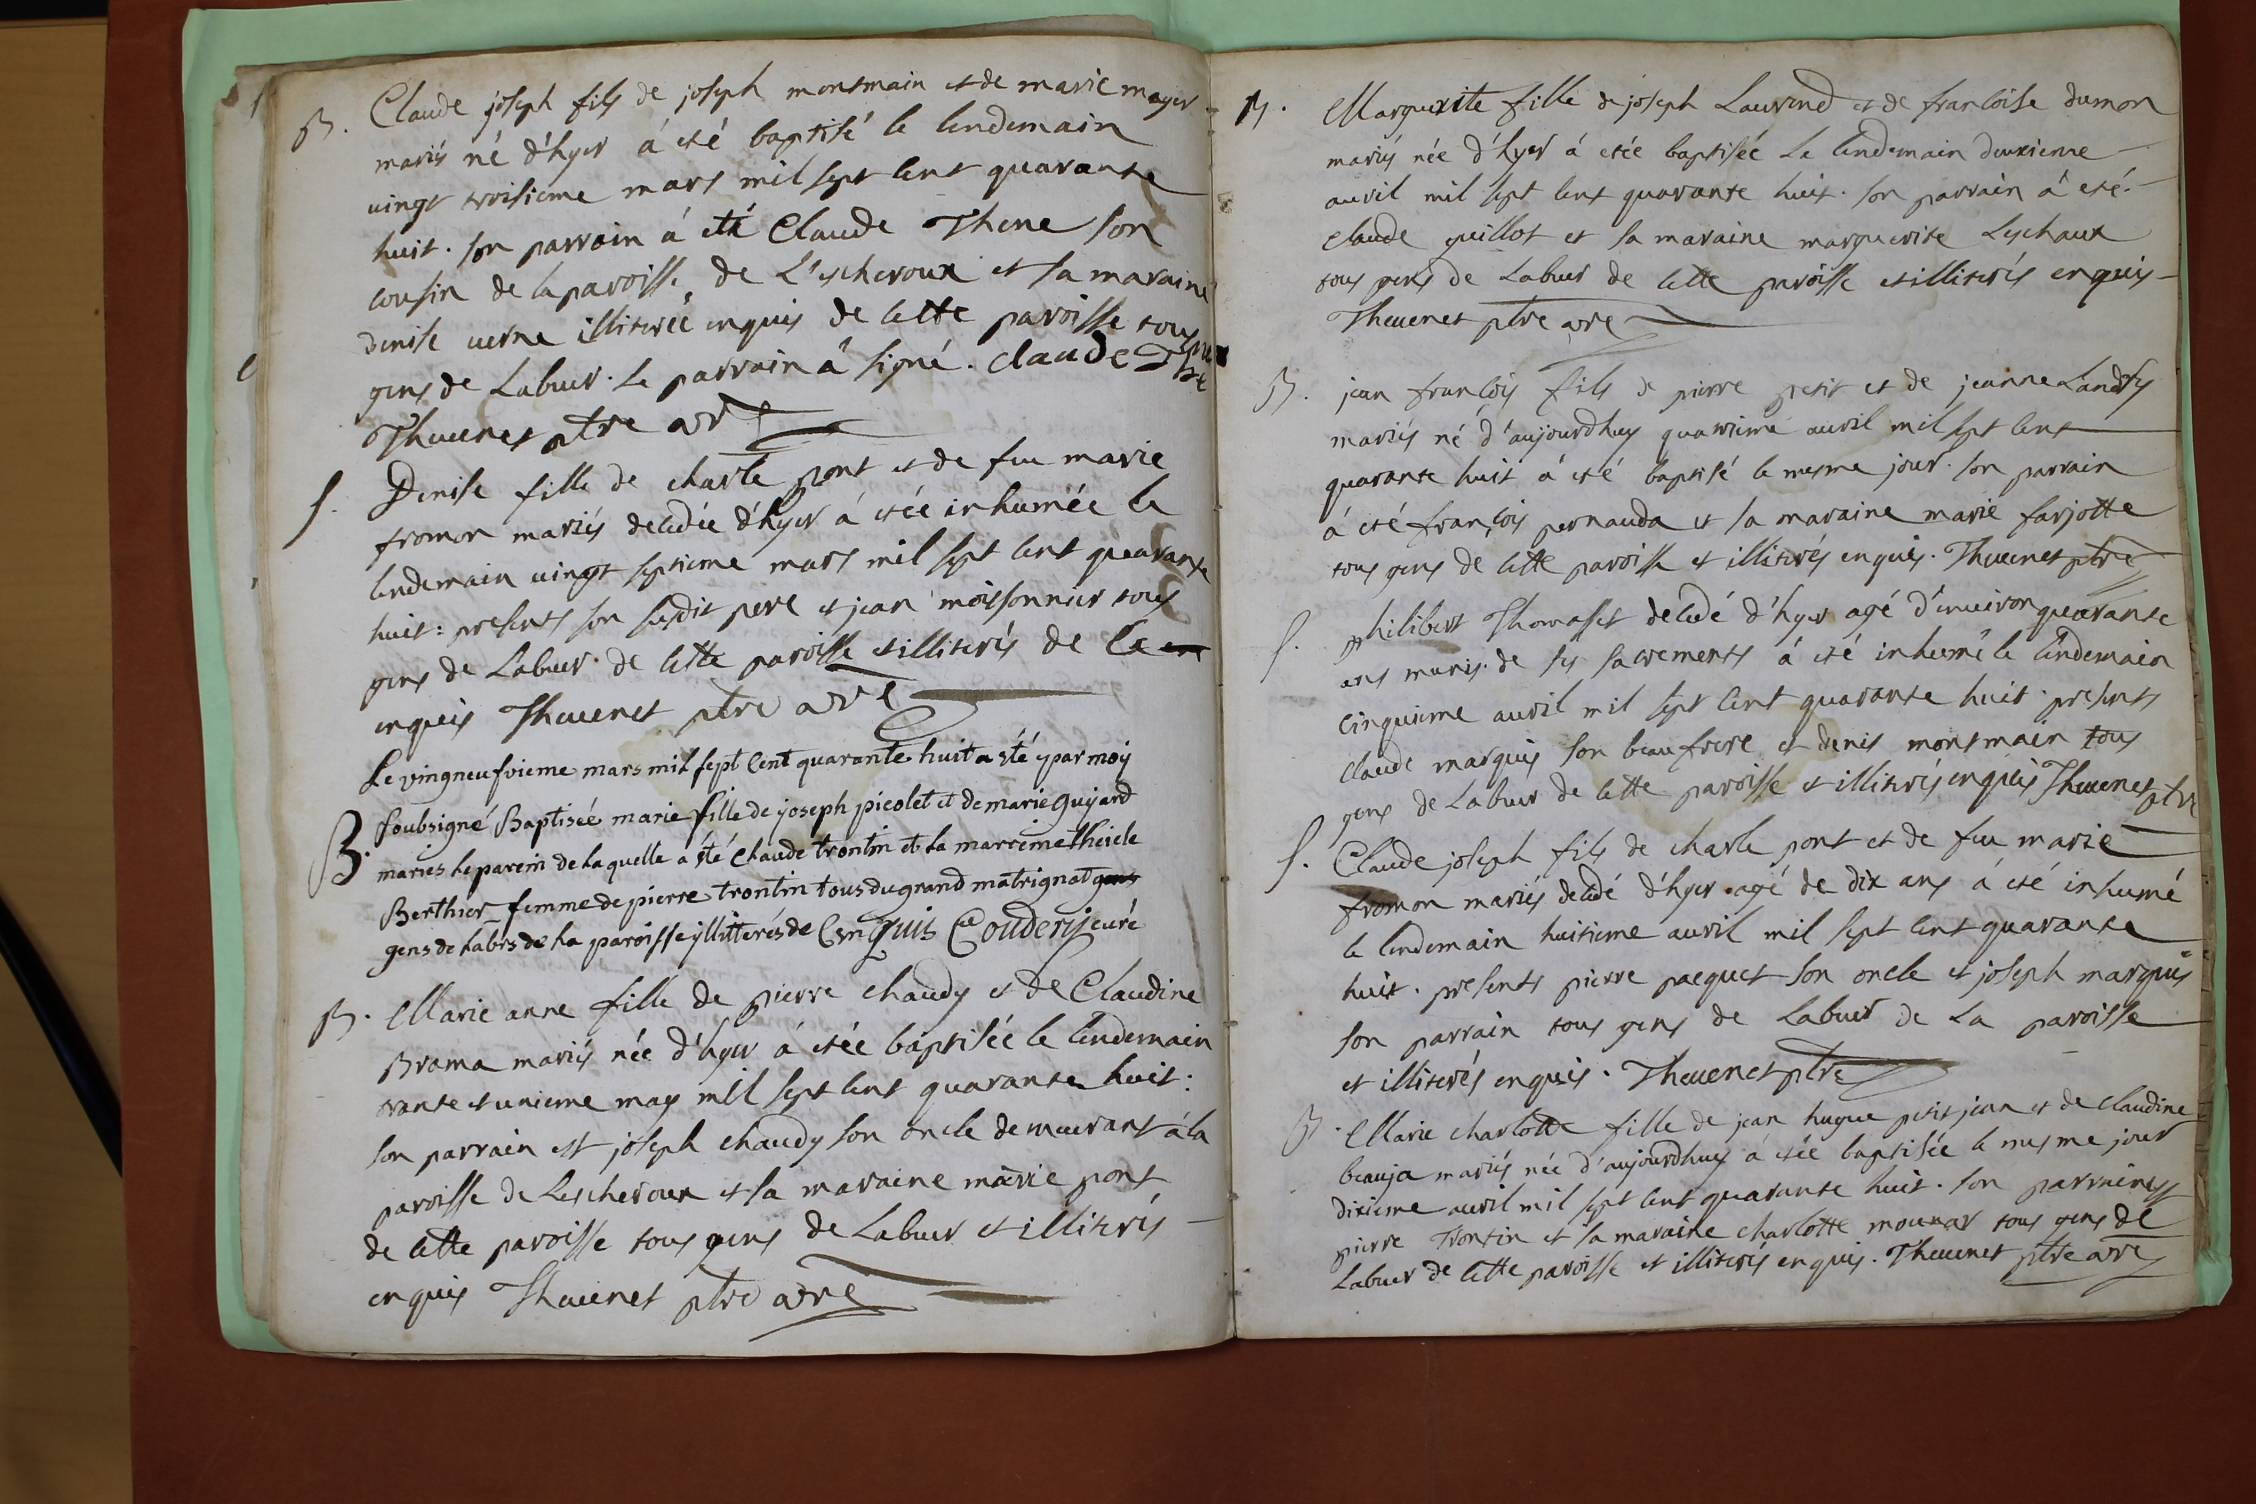 B. Claude joseph fils de joseph montmain et de marie mayer
mariés né d'hyer á eté baptisé le lendemain
vingt troisieme mars mil sept cent quarante
huit. son parrain á eté Claude Thene son
cousin de la paroisse de L'escheroux et sa maraine
denise verne illiterée enquis de cette paroisse tous
gens de Labeur. Le parrain á signé. claude
Thevenet ptre
S. Denise fille de charle pont et de feu marie
fromon mariés decedée d'hyer á etée inhumée le
lendemain vingt septieme mars mil sept cent quarante
huit: presents son susdit pere et jean moissonnier tous
gens de Labeur de cette paroisse et illiterés de ce
enquis Thevenet ptre
Le vingneufvieme mars mil sept Cent quarante huit a été par moy
B. soubsigné Baptisée marie fille de joseph picolet et de marie Guijard
mariés Le parein de Laquelle a été Claude trontin et La marreine
Berthier femme de pierre trontin tous du grand matrignat gens
gens de Labrs de La paroisse yllitterés de Cenquis Couderij curé
B. Marie anne fille de pierre chaudy et de Claudine
Brama mariés née d'hyer á etée baptisée le lendemain
trante et unieme may mil sept cent quarante huit:
son parrain est joseph chaudy son oncle demeurant á la
paroisse de Lescheroux et sa maraine marie pont
de cette paroisse tous gens de Labeur et illiterés
enquis Thevenet ptre
B. Marguerite fille de joseph Laurend et de francoise dumon
mariés née d'hyer á etée baptisée Le lendemain deuxieme
auvil mil sept cent quarante huit. son parrain á eté
claude guillot et sa maraine marguerite Leschaux
tous gens de Labeur de cette paroisse et illiterés enquis
Thevenet ptre
B. jean francois fils de pierre petit et de jeanne Landry
mariés né d'aujourdhuy quatrieme auvil mil sept cent
quarante huit á eté baptisé le mesme jour. son parrain
á eté françois pernauda et sa maraine marie farjotte
tous gens de cette paroisse et illiterés enquis. Thevenet ptre
S. philibert Thomasset decedé d'hyer agé d'environ quarante
ans munis de ses sacrements á eté inhumé le lendemain
cinquieme auvil mil sept cent quarante huit. presents
claude marquis son beaufrere et denis montmain tous
gens de Labeur de cette paroisse et illiterés enquis Thevenet ptre
S. Claude joseph fils de charle pont et de feu marie
fromon mariés decedé d'hyer agé de dix ans á eté inhumé
le lendemain huitieme auvil mil sept cent quarante
huit. presents pierre pacquet son oncle et joseph marquis
son parrain tous gens de Labeur de La paroisse
et illiterés enquis. Thevenet ptre
B. Marie charlotte fille de jean hugue petit jean et de claudine
beauja mariés née d'aujourdhuy á etée baptisée le mesme jour
dixieme auvil mil sept cent quarante huit. son parrain est
pierre Trontin et sa maraine charlotte mounar tous gens de
Labeur de cette paroisse et illiterés enquis. Thevenet ptre